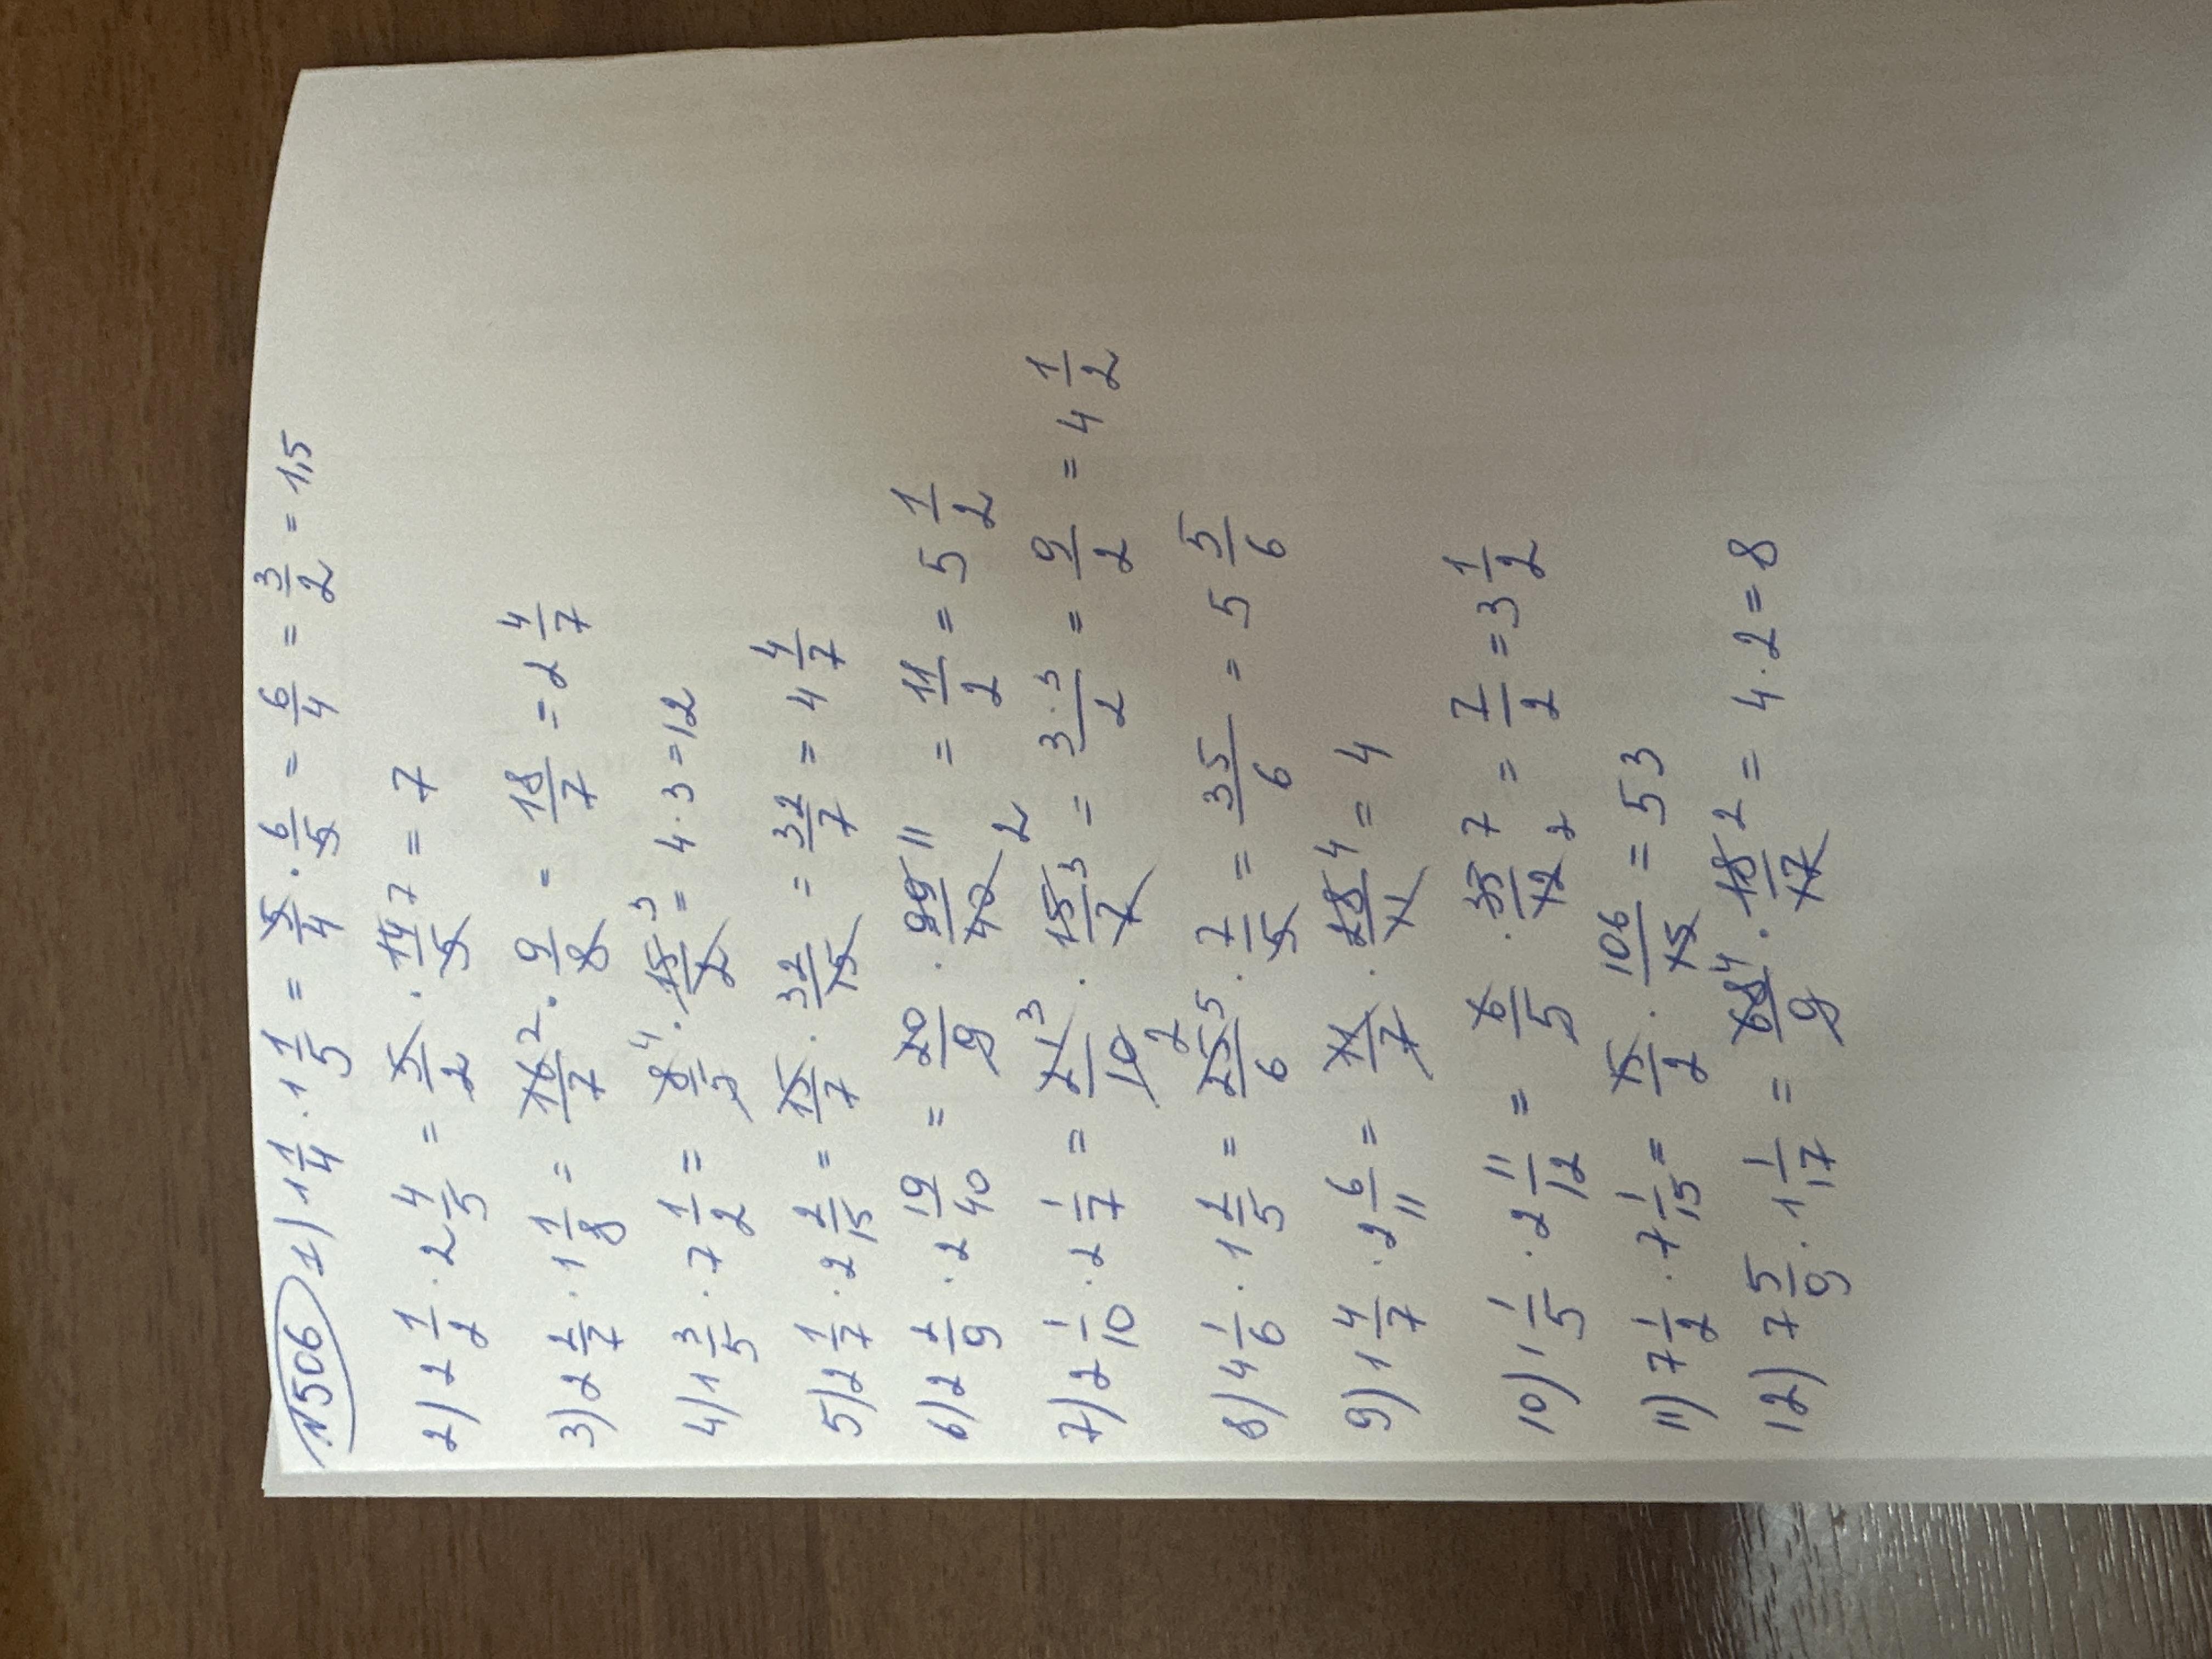 N506 1) 1 1/4 · 1 1/5 = 5/4 · 6/5 = 6/4 = 3/2 = 1,5
2) 2 1/2 · 2 4/5 = 5/2 · 14/5 7 = 7
3) 2 2/7 · 1 1/8 = 16/7 2 · 9/8 = 18/7 = 2 4/7
4) 1 3/5 · 7 1/2 = 8/5 4 · 15/2 3 = 4 · 3 = 12
5) 2 1/7 · 2 2/15 = 15/7 · 32/15 = 32/7 = 4 4/7
6) 2 2/9 · 2 19/40 = 20/9 · 99/40 11 2 = 11/2 = 5 1/2
7) 2 1/10 · 2 1/7 = 21/10 3 2 · 15/7 3 = 3·3/2 = 9/2 = 4 1/2
8) 4 1/6 · 1 2/5 = 25/6 5 · 7/5 = 35/6 = 5 5/6
9) 1 4/7 · 2 6/11 = 11/7 · 28/11 4 = 4
10) 1 1/5 · 2 11/12 = 6/5 · 35/12 7 2 = 7/2 = 3 1/2
11) 7 1/2 · 7 1/15 = 15/2 · 106/15 = 53
12) 7 5/9 · 1 1/17 = 68/9 4 · 18/17 2 = 4 · 2 = 8